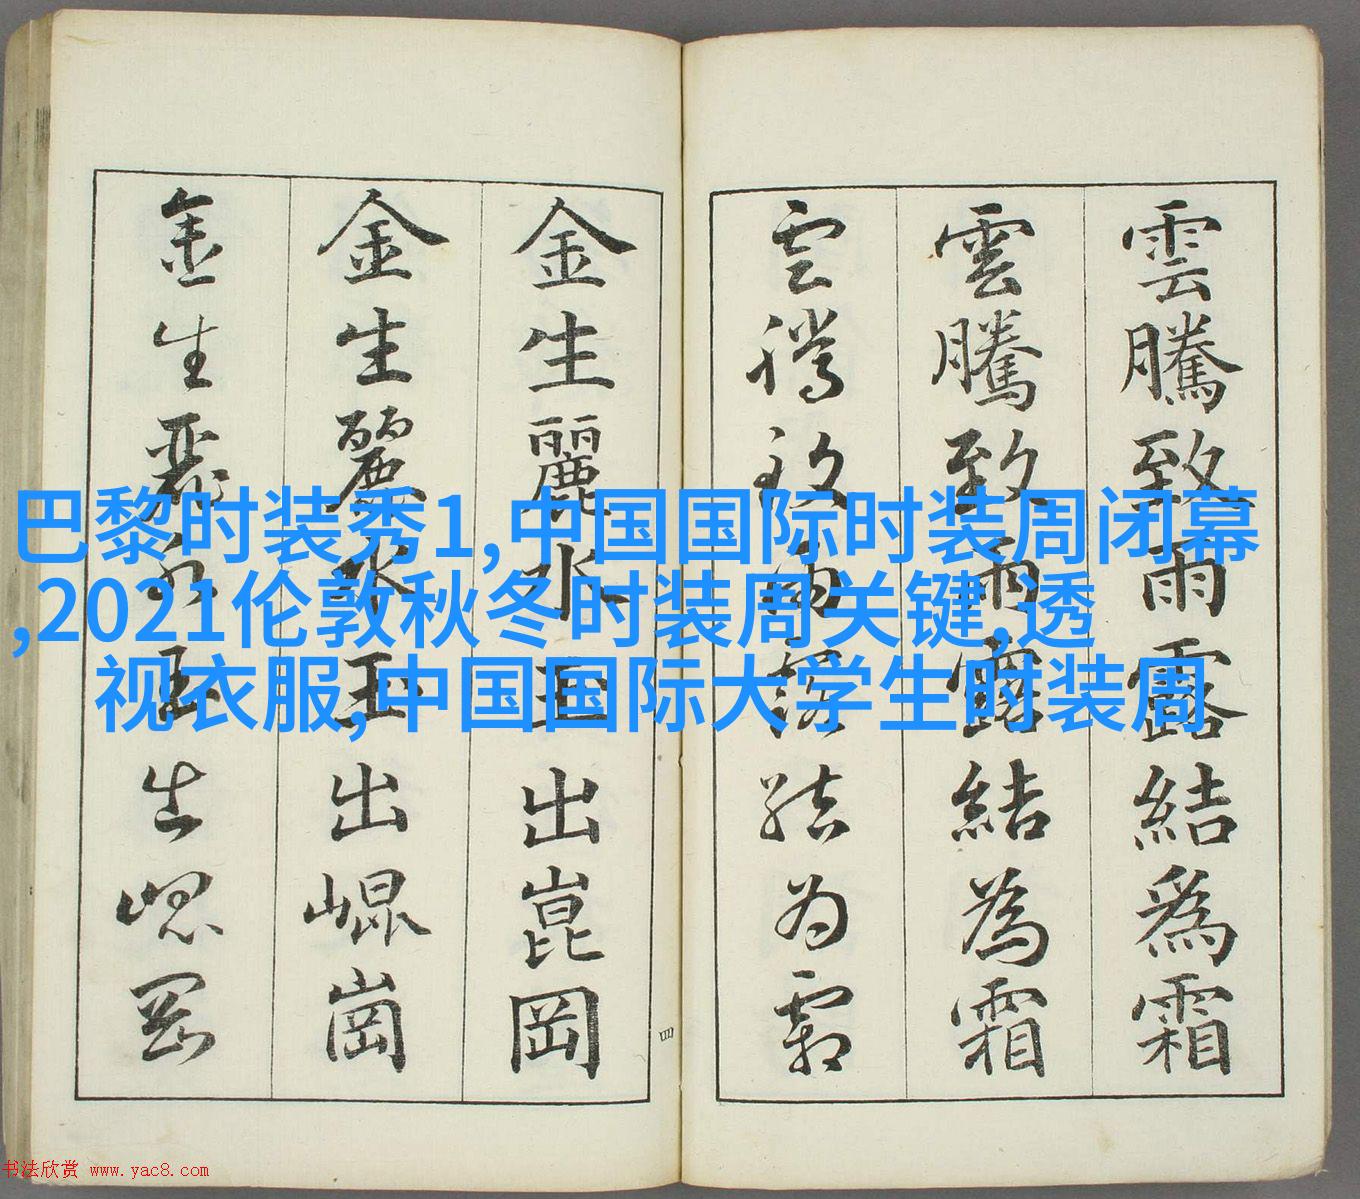 巴黎时装秀1,中国国际时装周闭幕
,2021伦敦秋冬时装周关键,透
视衣服,中国国际大学生时装周
雲騰致雨露結爲霜
雲騰致雨露結為霜
雲騰致雨露結为霜
四
金生麗水玉出崑岡
金生麗水玉出崐崗
金生麗水玉出崐岡
书法欣赏 www.yac8.com